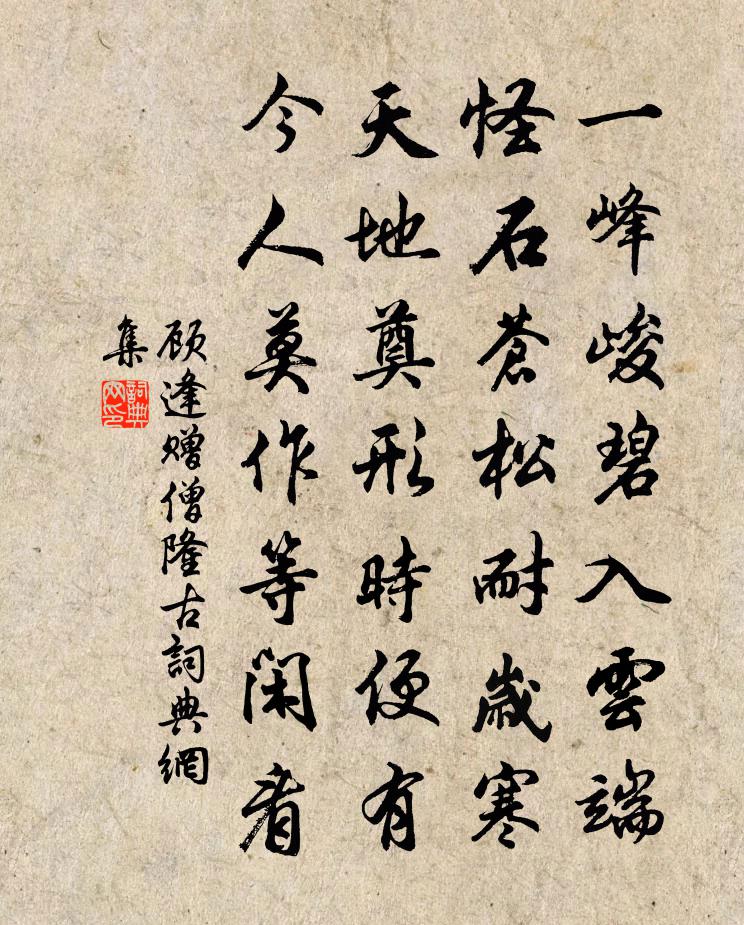 一峰峻碧入雲端
怪石蒼松耐歲寒
天地奠形時便有
今人莫作等閑看
顾逢赠僧隆古詞典網
集
詞典網印